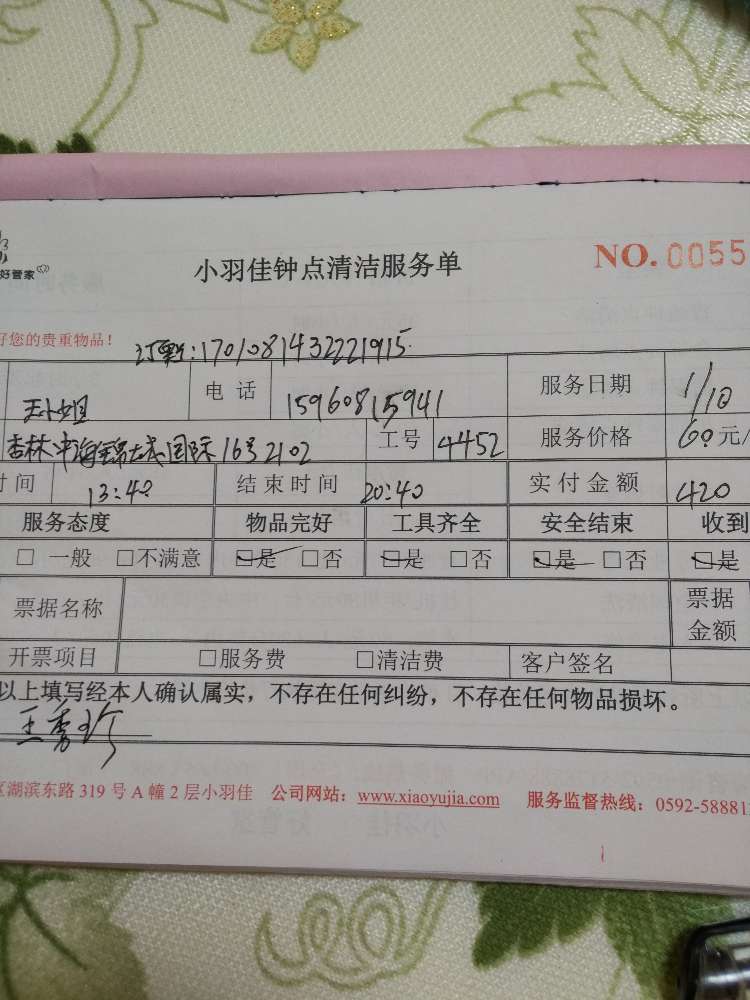 好管家
小羽佳钟点清洁服务单 NO. 0055
好您的贵重物品!
:1701081432221915
王小姐 电话 15960815941 服务日期 1/10
杏林中海锦城国际16号2102 工号 4452 服务价格 60元/
时间 13:40 结束时间 20:40 实付金额 420
服务态度 物品完好 工具齐全 安全结束 收到
□一般 □不满意 □是 □否 □是 □否 □是 □否 □是
票据名称 票据金额
开票项目 □服务费 □清洁费 客户签名
以上填写经本人确认属实,不存在任何纠纷,不存在任何物品损坏。
王秀珍
区湖滨东路319号A幢2层小羽佳 公司网站:www.xiaoyujia.com 服务监督热线:0592-58881